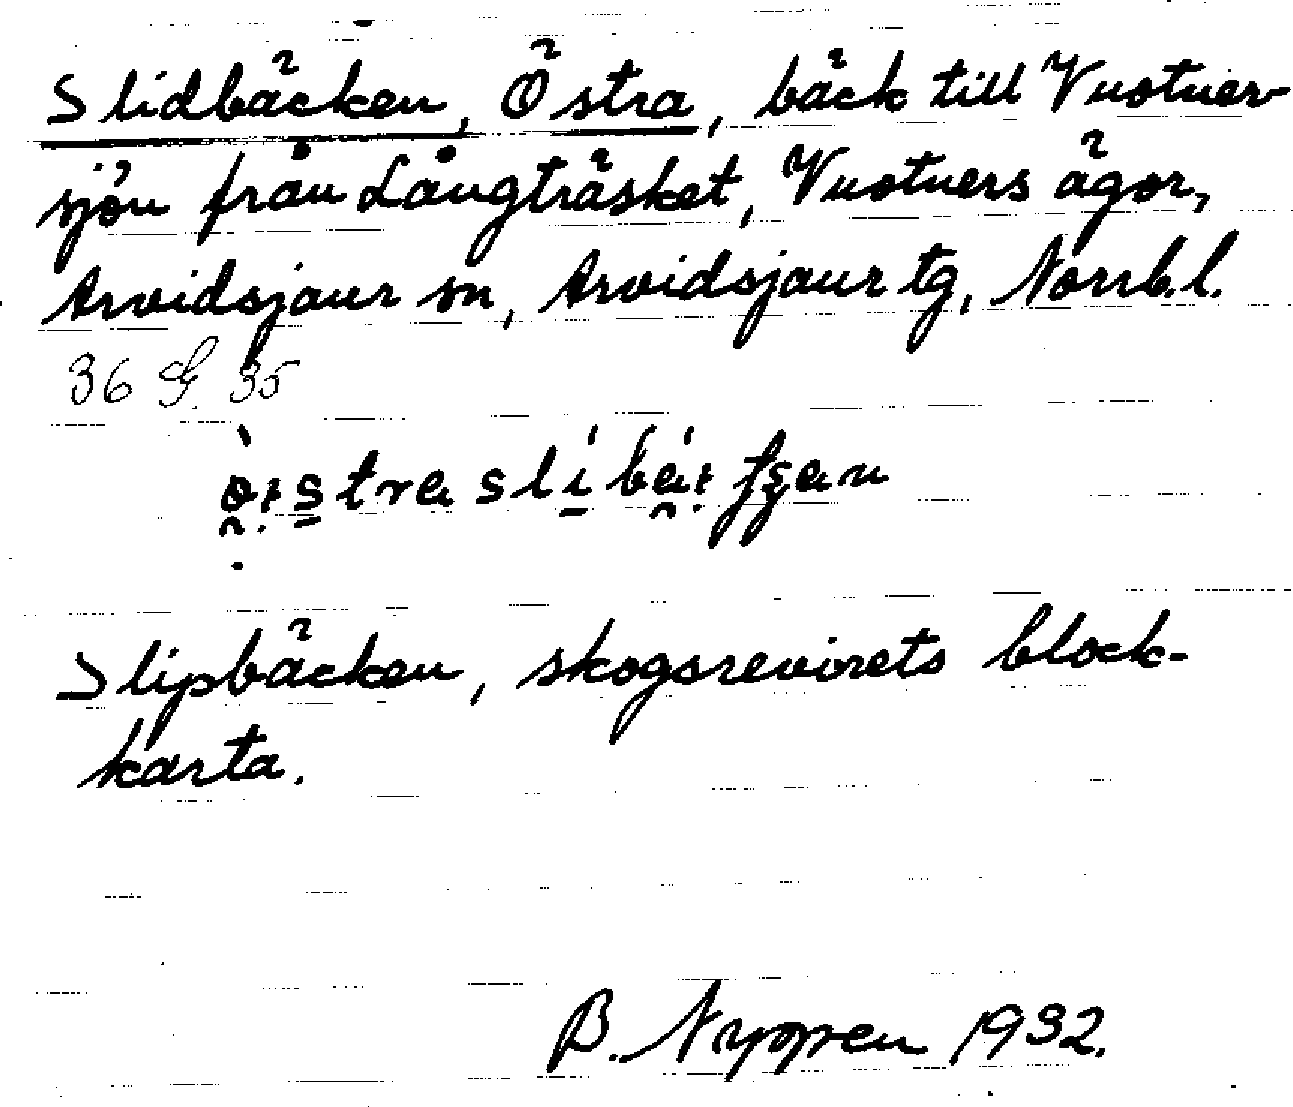 Slidbäcken, Östra, bäck till Vuotner-
sjön från Långträsket, Vuotners ägor,
Arvidsjaur sn, Arvidsjaur tg, Norrb.l.
36 G. 35
Slipbäcken, skogsrevirets block-
karta.
B. Nyppen 1932.